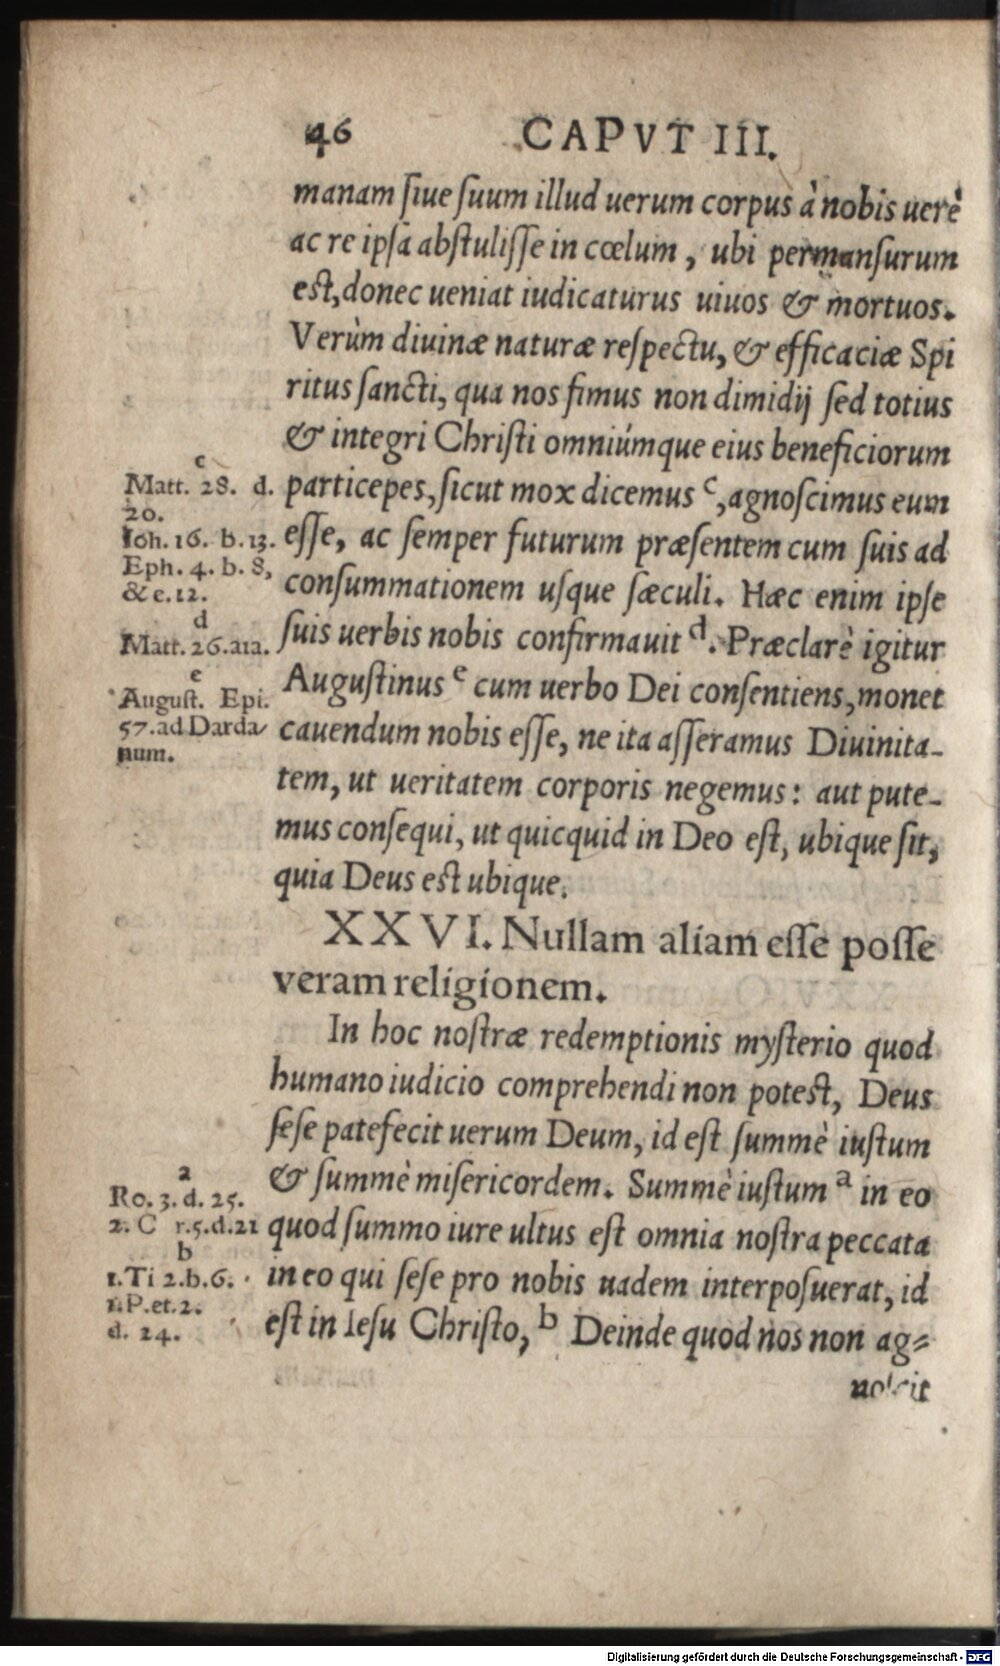 46 CAPVT III.
manam ſiue ſuum illud uerum corpus à nobis uerè
ac re ipſa abſtuliſſe in cœlum, ubi permanſurum
eſt, donec ueniat iudicaturus uiuos & mortuos.
Verùm diuinæ naturæ reſpectu, & efficaciæ Spi
ritus ſancti, qua nos fimus non dimidij ſed totius
& integri Chriſti omniúmque eius beneficiorum
particepes, ſicut mox dicemus c, agnoſcimus eum
eſſe, ac ſemper futurum præſentem cum ſuis ad
conſummationem uſque ſæculi. Hæc enim ipſe
ſuis uerbis nobis confirmauit d. Præclarè igitur
Auguſtinus e cum uerbo Dei conſentiens, monet
cauendum nobis eſſe, ne ita aſſeramus Diuinita-
tem, ut ueritatem corporis negemus: aut pute-
mus conſequi, ut quicquid in Deo eſt, ubique ſit,
quia Deus eſt ubique.
c
Matt. 28. d.
20.
Ioh. 16. b. 13.
Eph. 4. b. 8,
& c. 12.
d
Matt. 26.a11.
e
Auguſt. Epi.
57. ad Darda-
num.
XXVI. Nullam aliam eſſe poſſe
veram religionem.
In hoc noſtræ redemptionis myſterio quod
humano iudicio comprehendi non poteſt, Deus
ſeſe patefecit uerum Deum, id eſt ſummè iuſtum
& ſummè miſericordem. Summè iuſtum a in eo
quod ſummo iure ultus eſt omnia noſtra peccata
in eo qui ſeſe pro nobis uadem interpoſuerat, id
eſt in Ieſu Chriſto, b Deinde quod nos non ag-
a
Ro. 3. d. 25.
2. C r.5.d.21
b
1.Ti 2.b.6.
1.P.et.2.
d. 24.
noſcit
Digitalisierung gefördert durch die Deutsche Forschungsgemeinschaft - DFG